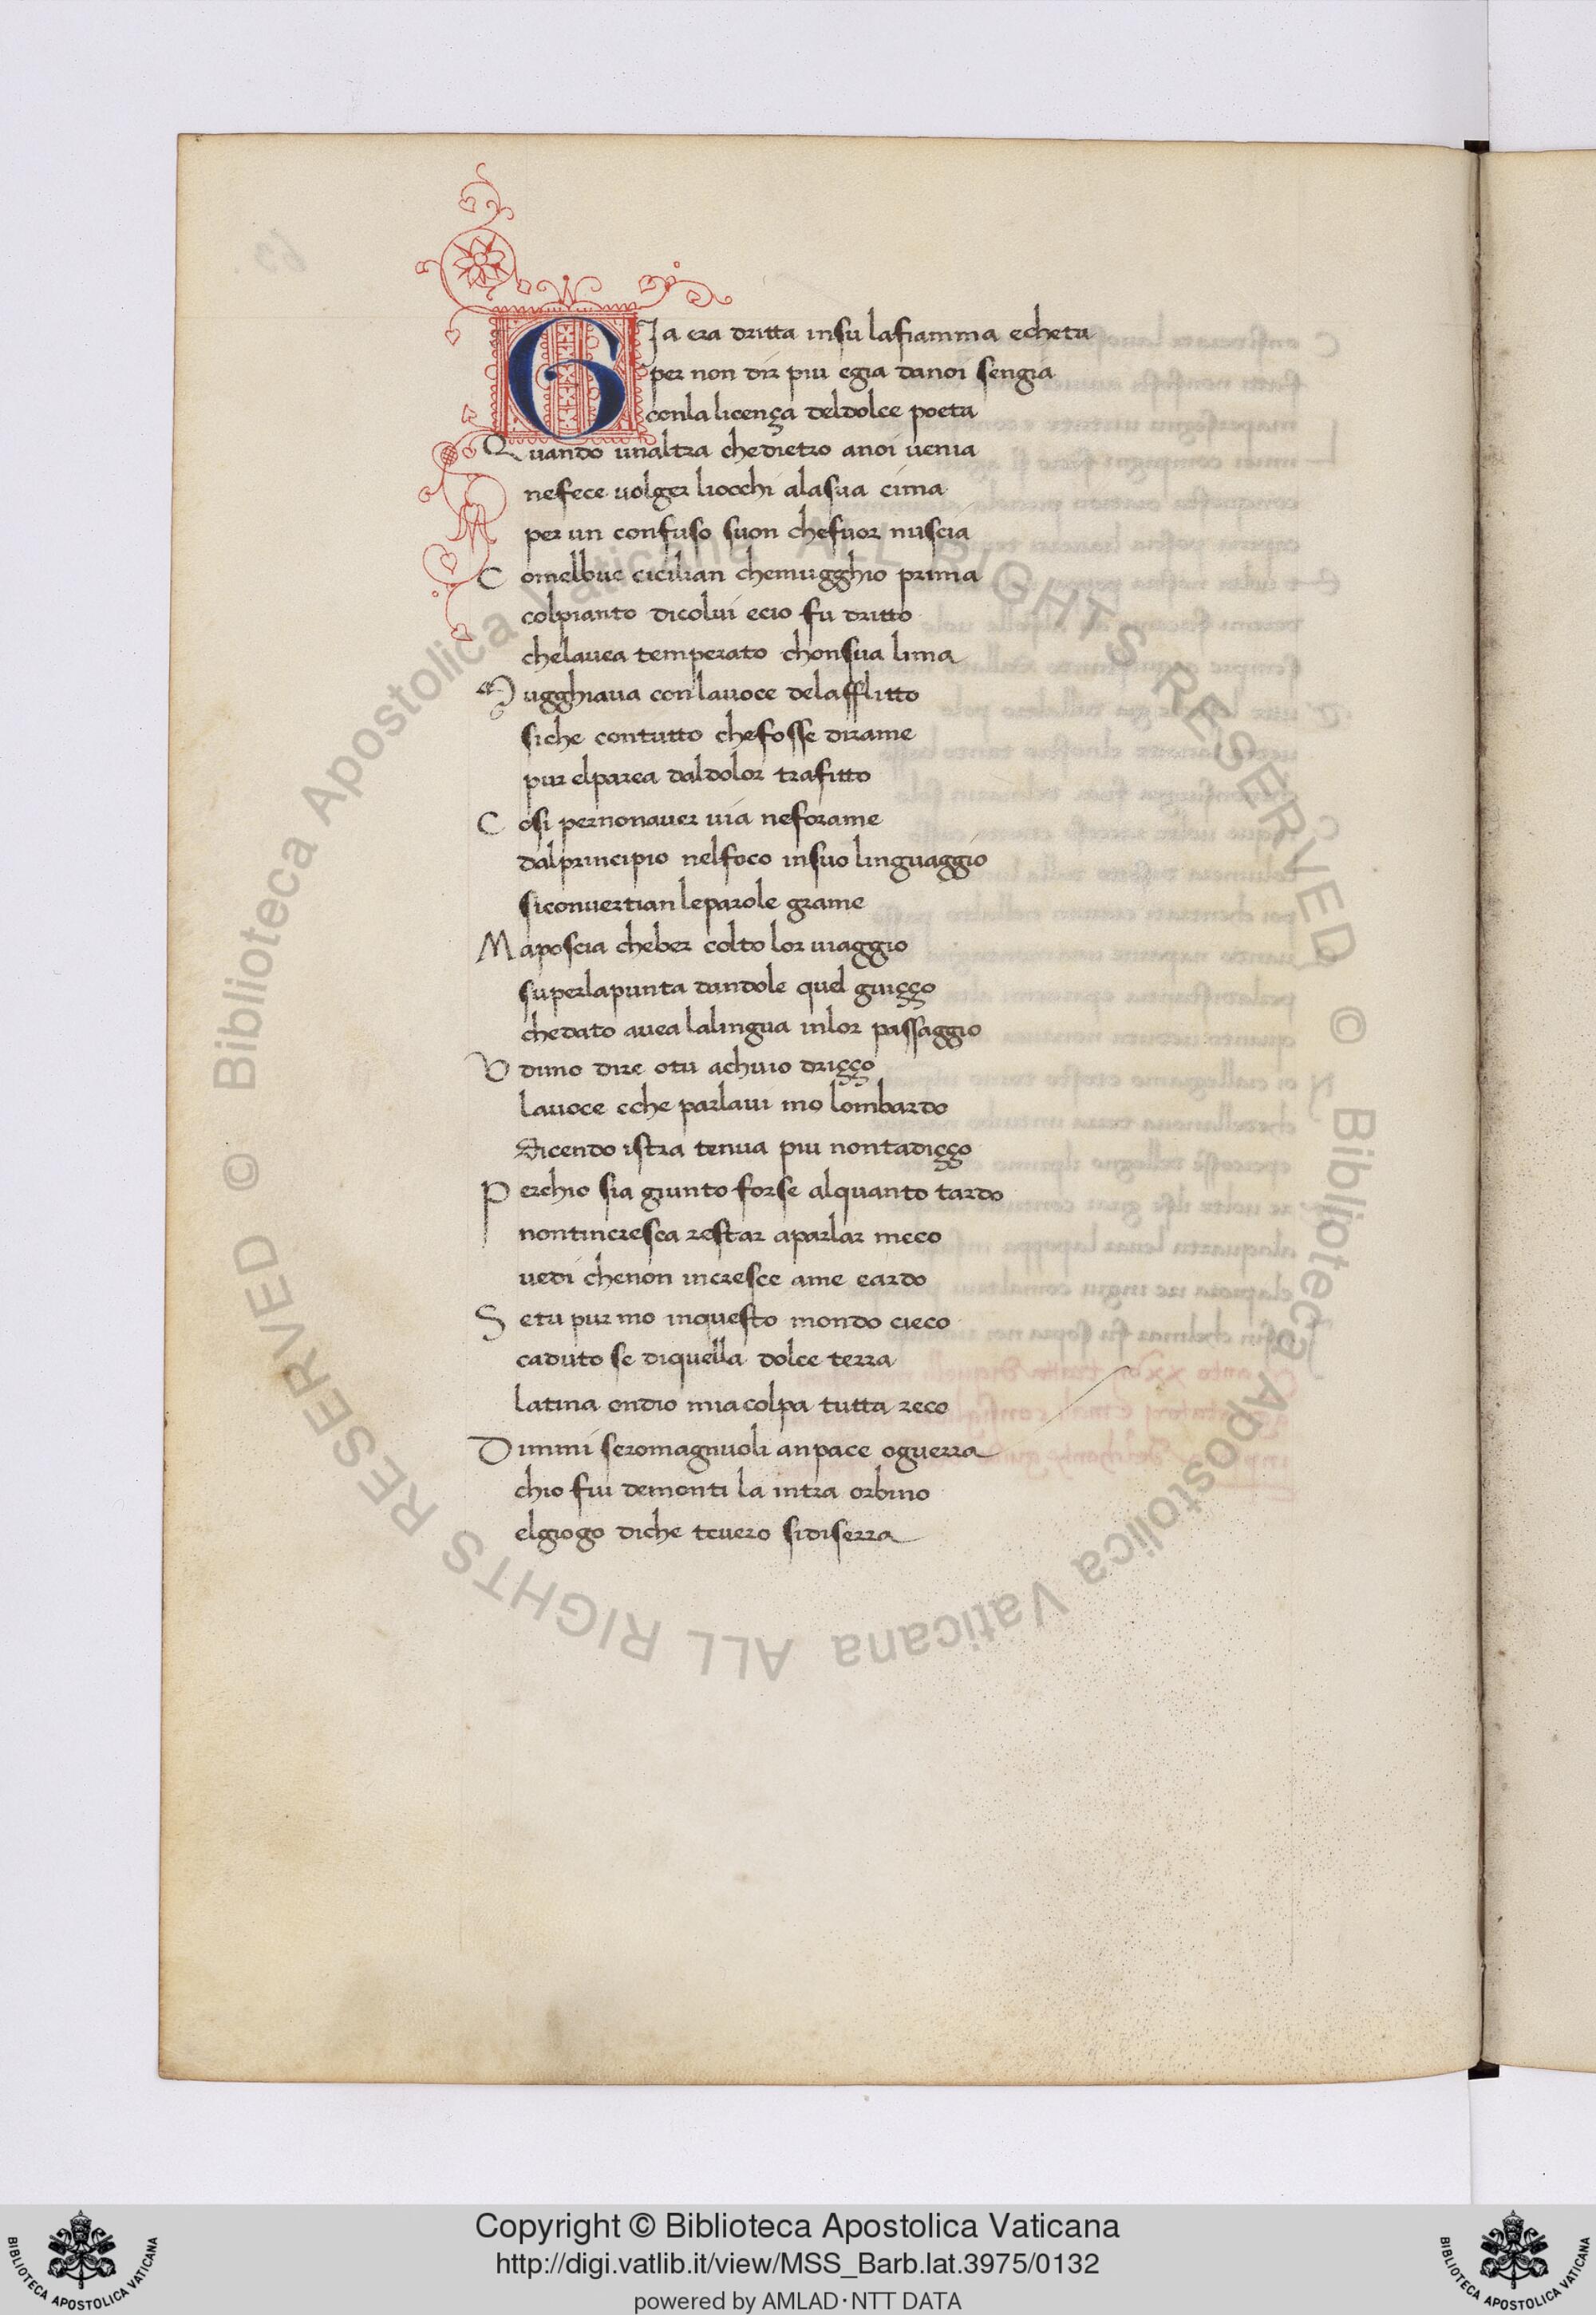 GIa era dritta insu lafiamma echeta
per non dir piu egia danoi sengia
conla licença deldolce poeta
Quando unaltra chedietro anoi uenia
nefece uolger liocchi alasua cima
per un confuso suon chefuor nuscia
Comelbue cicilian chemugghio prima
colpianto dicolui ecio fu dritto
chelauea temperato chonsua lima
Mugghiaua con lauoce delafflitto
siche contutto chefosse dirame
pur elparea daldolor trafitto
Cosi pernonauer uia neforame
dalprincipio nelfoco insuo linguaggio
siconuertian leparole grame
Maposcia cheber colto lor uiaggio
superlapunta dandole quel guiçço
chedato auea lalingua inlor passaggio
Vdimo dire otu achuio driçço
lauoce eche parlaui mo lombardo
dicendo istra tenua piu nontadiçço
Perchio sia giunto forse alquanto tardo
nontincresca restar aparlar meco
uedi chenon incresce ame eardo
Setu pur mo inquesto mondo cieco
caduto se diquella dolce terra
latina ondio mia colpa tutta reco
Dimmi seromagnuoli anpace oguerra
chio fui demonti la intra orbino
elgiogo diche teuero sidiserra
© Biblioteca Apostolica Vaticana ALL RIGHTS RESERVED © Biblioteca Apostolica Vaticana ALL RIGHTS RESERVED
Copyright © Biblioteca Apostolica Vaticana
http://digi.vatlib.it/view/MSS_Barb.lat.3975/0132
powered by AMLAD·NTT DATA
BIBLIOTECA APOSTOLICA VATICANA
BIBLIOTECA APOSTOLICA VATICANA